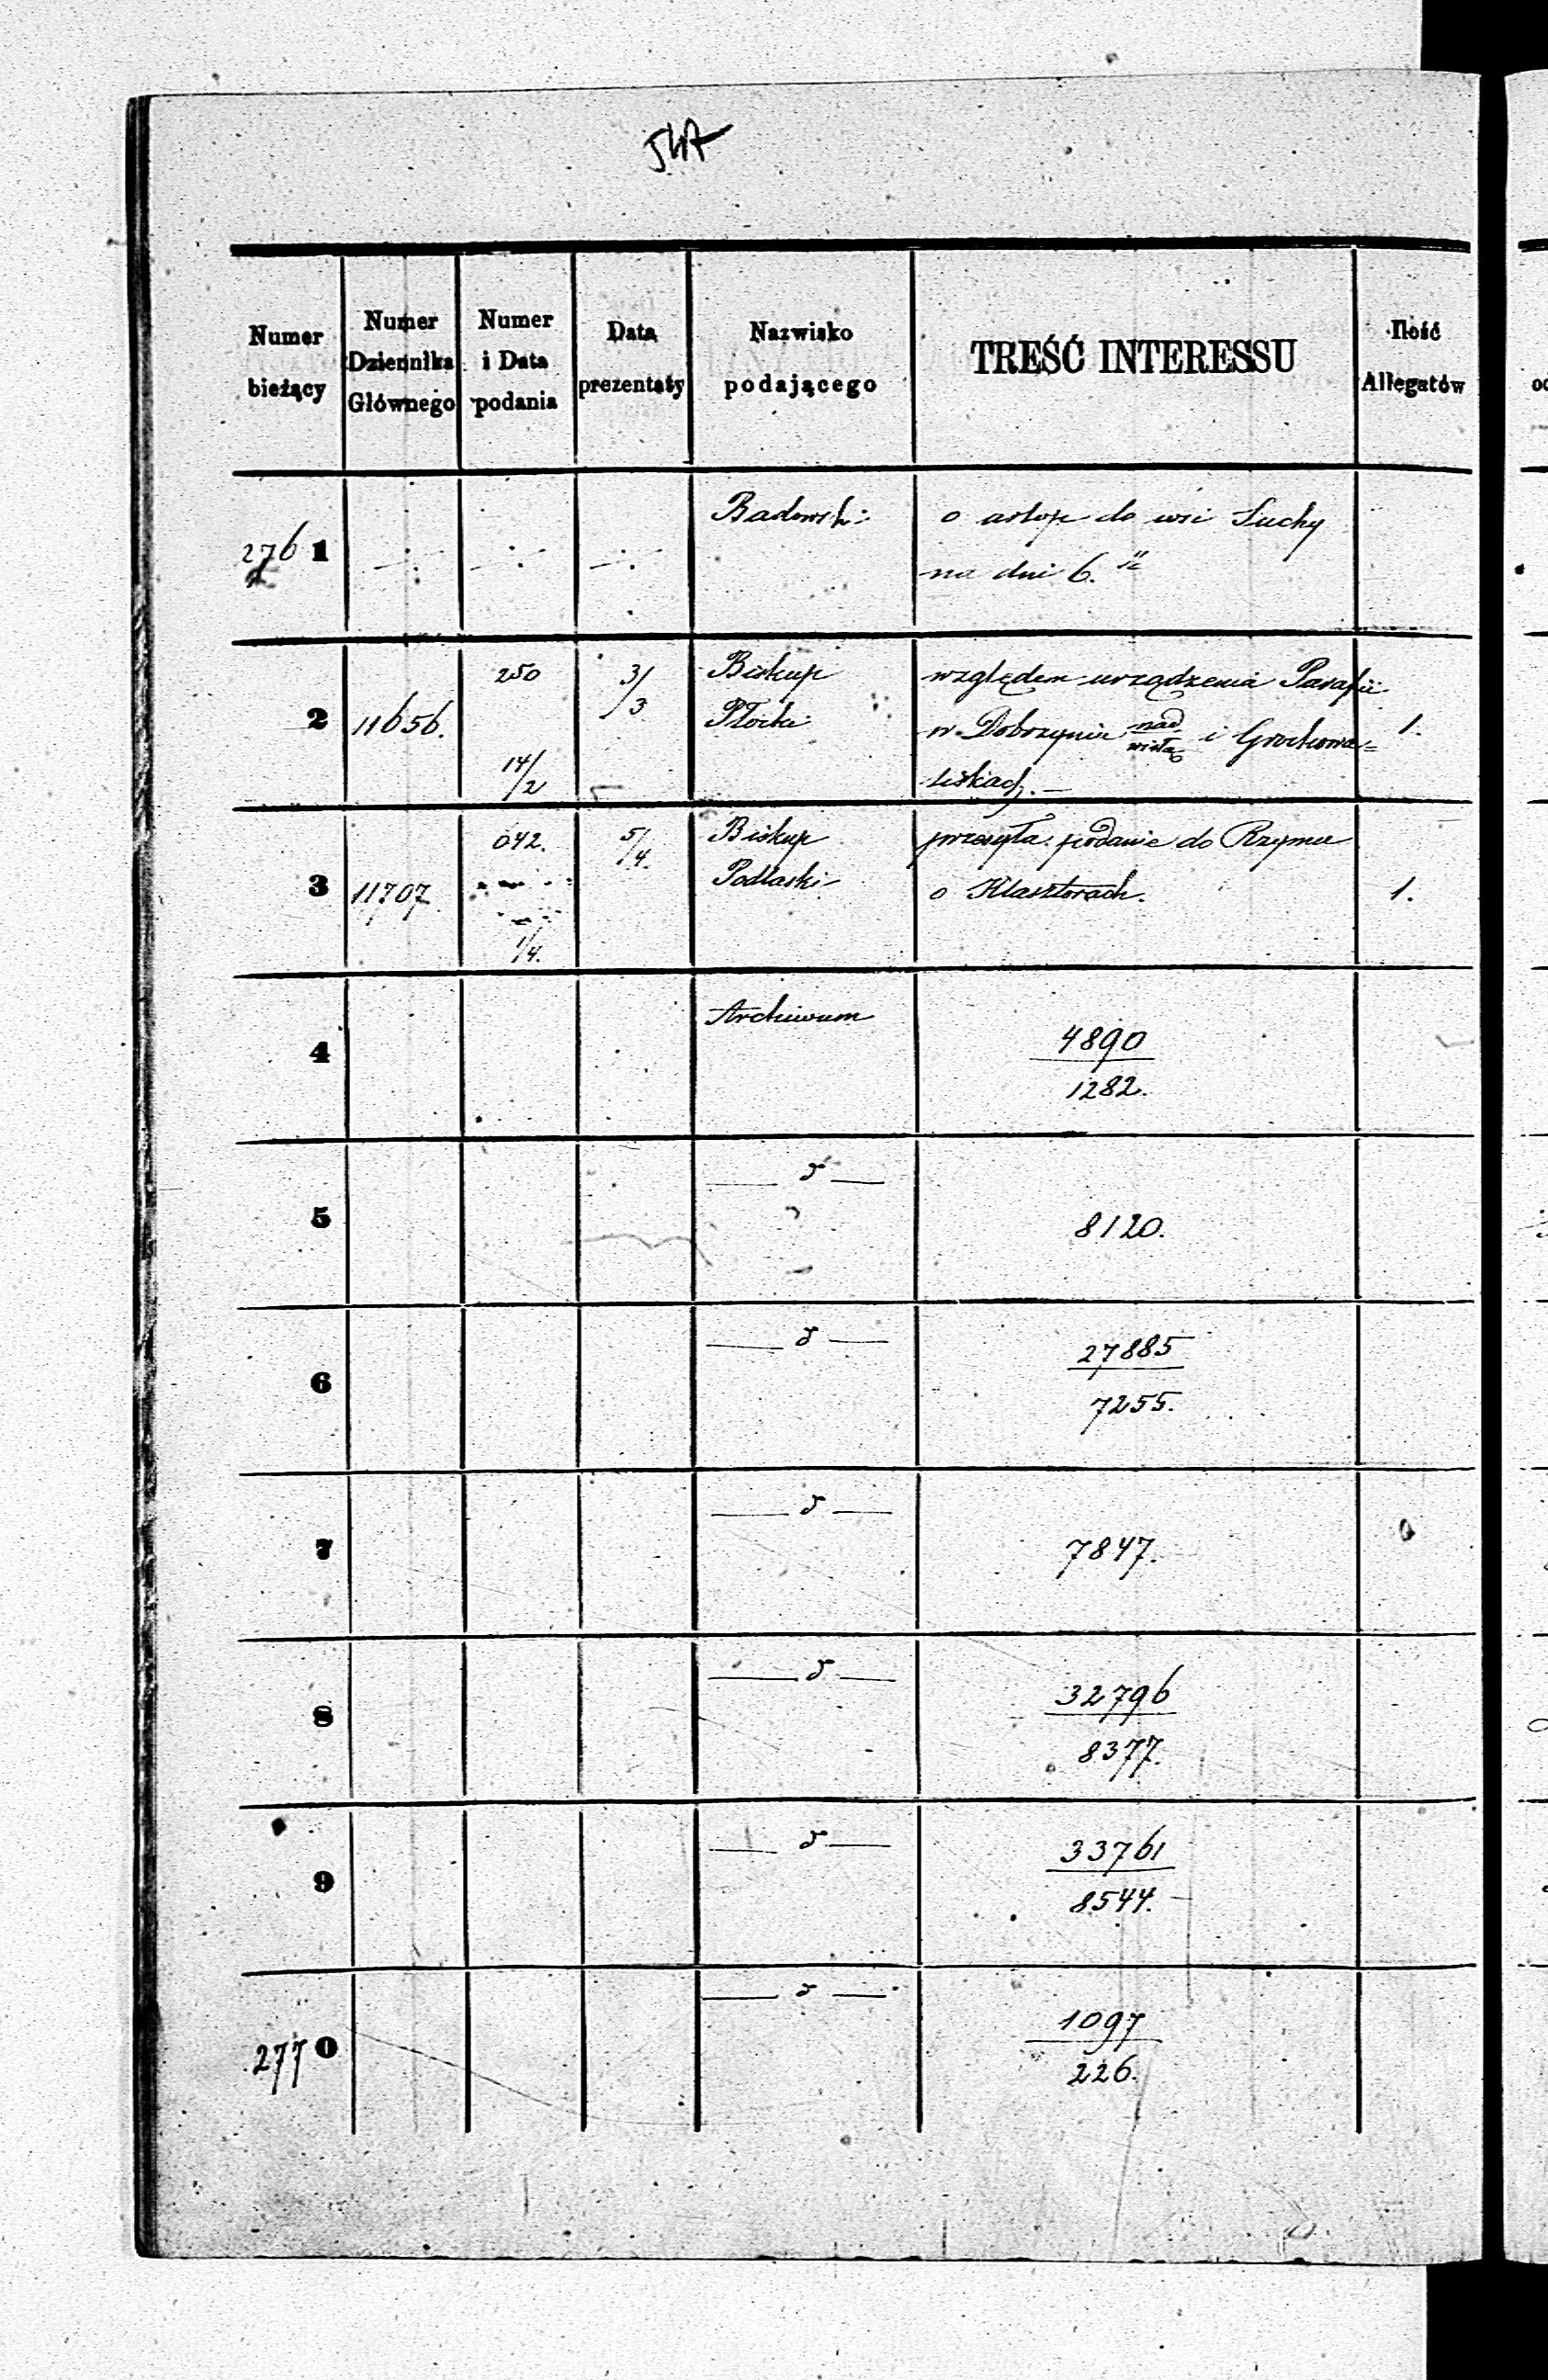 547
Numer bieżący | Numer Dziennika Głównego | Numer i Data podania | Data prezentaty | Nazwisko podającego | TREŚĆ INTERESSU | Ilość Allegatów
2761 | —:— | —:— | —:— | Badowski | o urlop do wsi Suchy
na dni 6.
2 | 11656. | 250 14/2 | 3/3 | Biskup Płocki | względem urządzenia Parafii | 1.
w Dobrzyniu nad wisłą i Grochowa=
liskach.—
3 | 11707 | 042. 1/4. | 5/4. | Biskup Podlaski | przesyła podanie do Rzymu | 1.
o Klasztorach.
4 | Archiwum | 4890
1282.
5 | — d — | 8120.
6 | — d — | 27885
7255.
7 | — d — | 7847.
8 | — d — | 32796
8377.
9 | — d — | 33761
8544.
2770 | — d — | 1097
226.